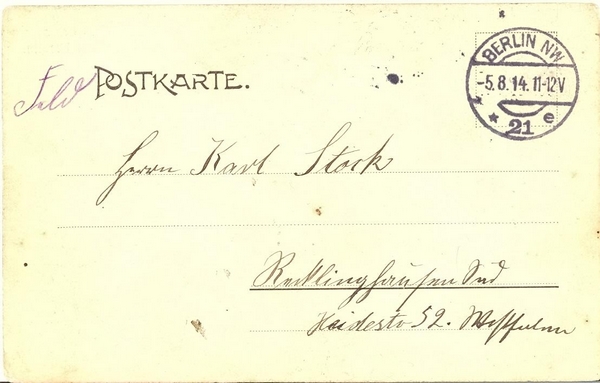 Feld POSTKARTE.
BERLIN NW
-5.8.14.11-12V
* * 21 e
Herrn Karl Stock
Recklinghausen Süd
Heidestr 52. Westfalen